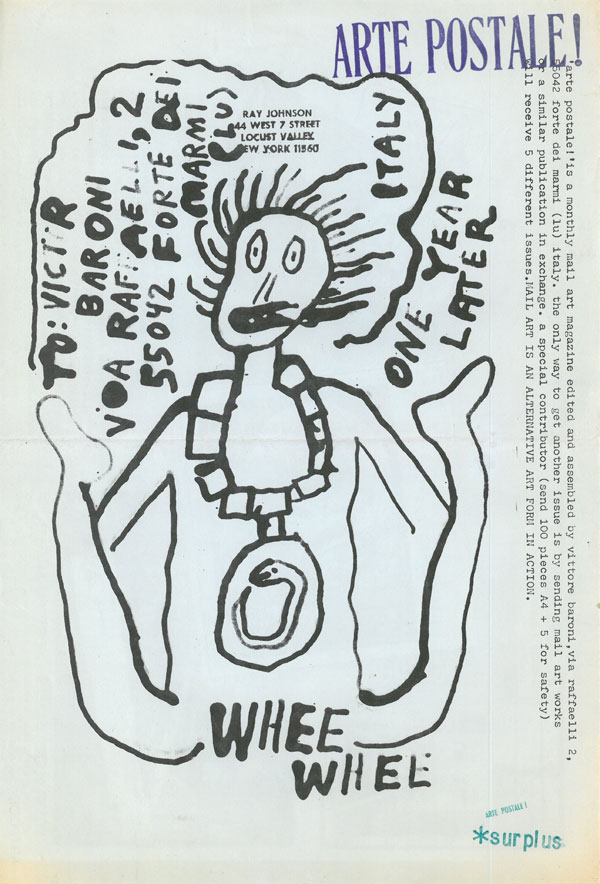 ARTE POSTALE!
'arte postale!'is a monthly mail art magazine edited and assembled by vittore baroni,via raffaelli 2,
55042 forte dei marmi (lu) italy. the only way to get another issue is by sending mail art works
or a similar publication in exchange. a special contributor (send 100 pieces A4 + 5 for safety)
will receive 5 different issues.MAIL ART IS AN ALTERNATIVE ART FORM IN ACTION.
RAY JOHNSON
44 WEST 7 STREET
LOCUST VALLEY
NEW YORK 11560
TO: VICTOR
BARONI
VIA RAFFAELLI, 2
55042 FORTE DEI
MARMI
(LU)
ITALY
ONE YEAR
LATER
WHEE
WHEE
ARTE POSTALE!
*surplus